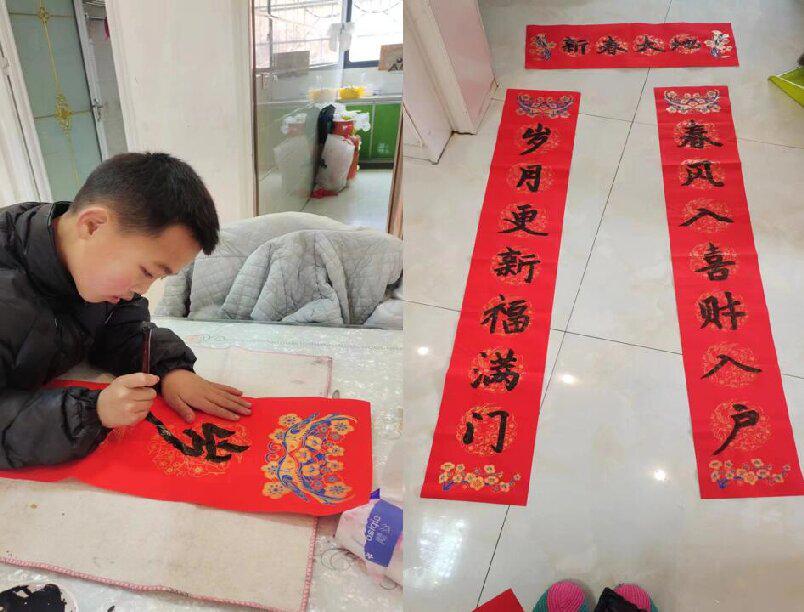 岁
新春大地
春风入喜财入户
岁月更新福满门